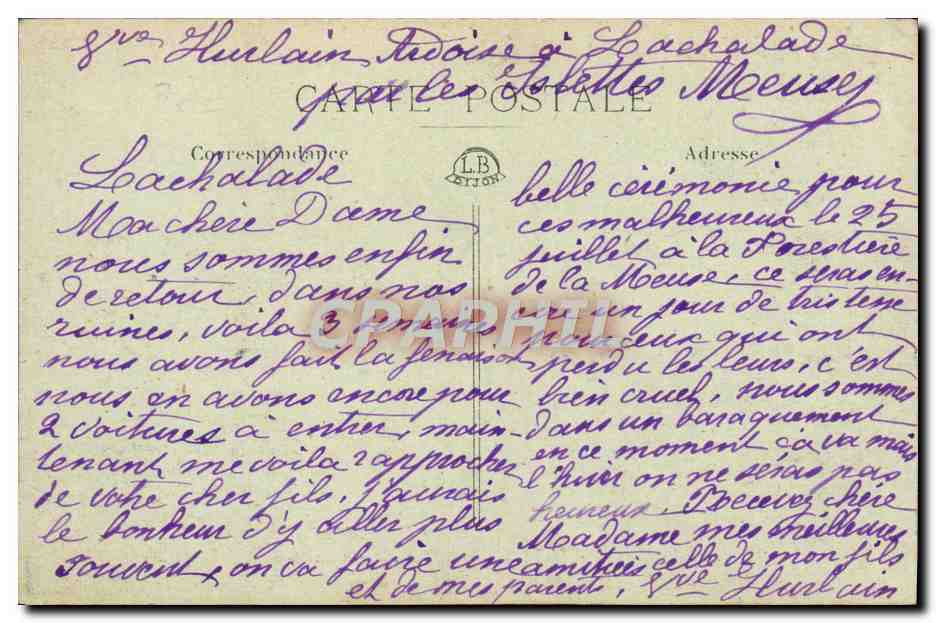 Vve Hurlain Ardoise à Lachalade
par les Islettes Meuse
CARTE POSTALE
Correspondance
L.B
DIJON
Adresse
Lachalade
Ma chère Dame
nous sommes enfin
de retour, dans nos
ruines, voila 3 semaines
nous avons fait la fenaison
nous en avons encore pour
2 voitures à entrer, main-
tenant me voila rapprocher
de votre cher fils, j'aurais
le bonheur d'y aller plus
souvent, on va faire une
belle cérémonie pour
ces malheureux le 25
juillet à la Forestière
de la Meuse, ce seras en-
core un jour de tristesse
pour ceux qui ont
perdu les leurs, c'est
bien cruel, nous sommes
dans un baraquement
en ce moment ça va mais
l'hiver on ne séras pas
heureux. Recevez chère
Madame mes meilleures
amitiées celle de mon fils
et de mes parents, Vve Hurlain
CPAPHIL